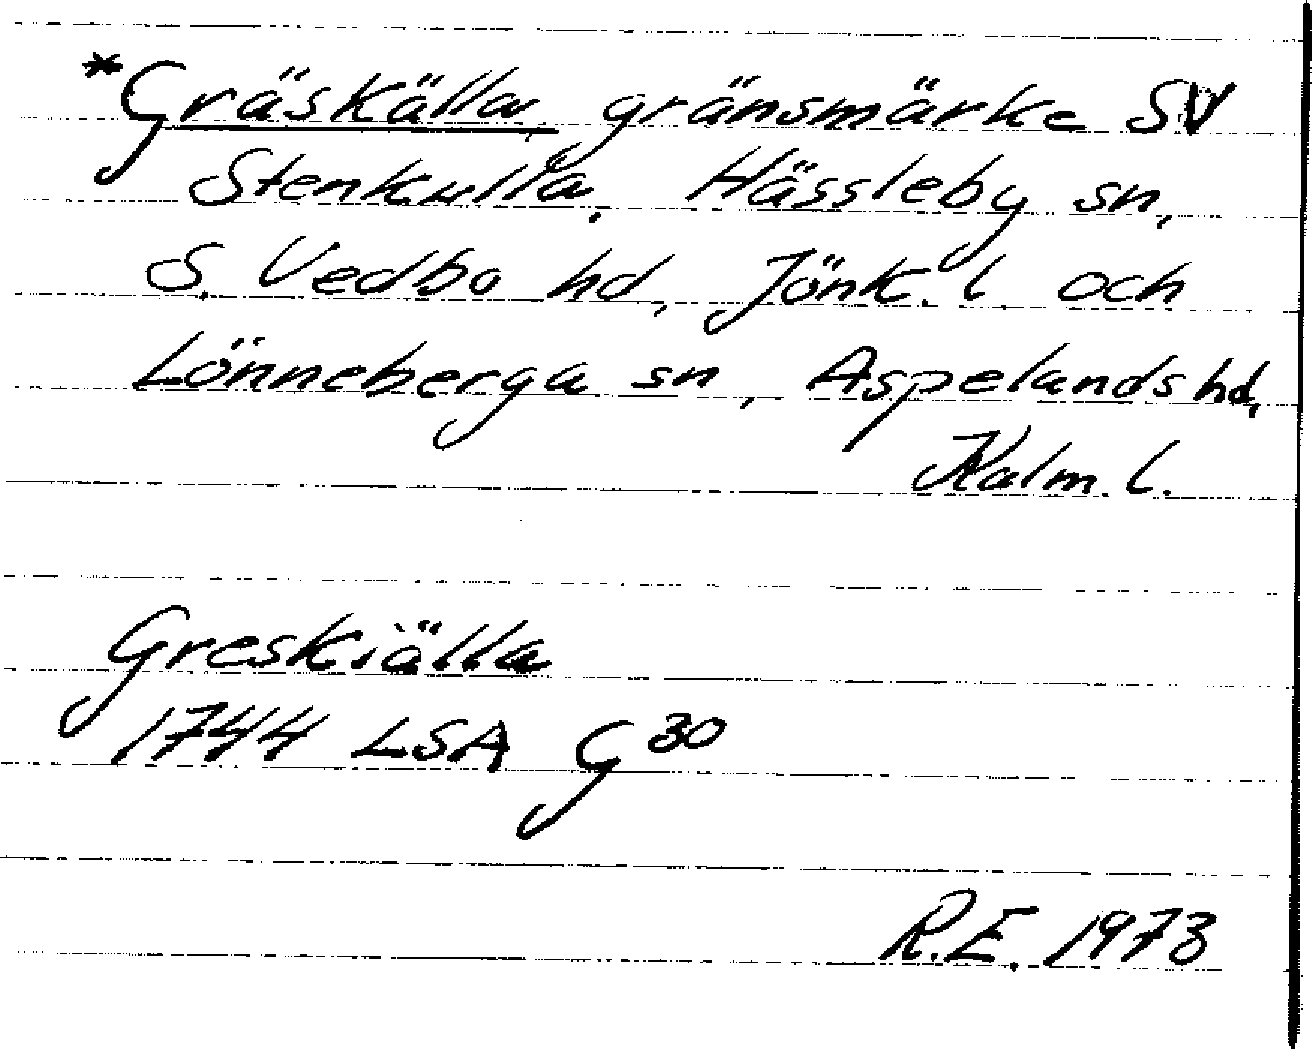 *Gräskälla, gränsmärke SV
Stenkulla, Hässleby sn,
S. Vedbo hd, Jönk. l. och
Lönneberga sn, Aspelands hd,
Kalm. l.
Greskiälla
1744 LSA G 30
R.E. 1973